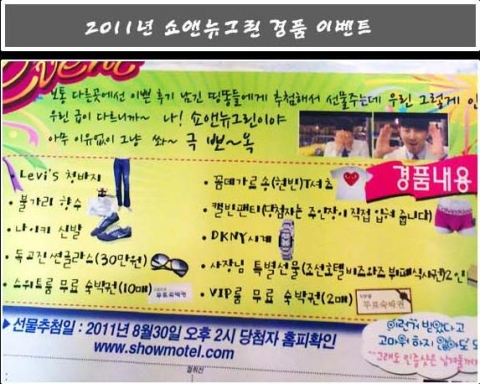 2011년 쇼앤뉴그린 경품 이벤트
Event
보통 다른곳에선 이쁜 후기 남긴 띵똥들에게 추첨해서 선물주는데 우린 그렇게 인
우린 급이 다르니까~ 나! 쇼앤뉴그린이야
아무 이유없이 그냥 쏴~ 극 뽀~옥
경품내용
• Levi's 청바지
• 불가리 향수
• 나이키 신발
• 독고진 썬글라스(30만원)
• 스위트룸 무료 숙박권(10매)
• 꼼데가르송(현빈)T셔츠
• 캘빈팬티(당첨자는 주인장이 직접 입혀 줍니다)
• DKNY시계
• 사장님 특별선물(조선호텔 비즈바즈 뷔페식사권)2인
• VIP룸 무료 숙박권(2매)
무료숙박권
무료숙박권
▶ 선물추첨일 : 2011년 8월30일 오후 2시 당첨자 홈피확인
www.showmotel.com
이런거 받았다고
고마워 하지 않아도 되
그래도 인증샷은 남겨줄꺼지